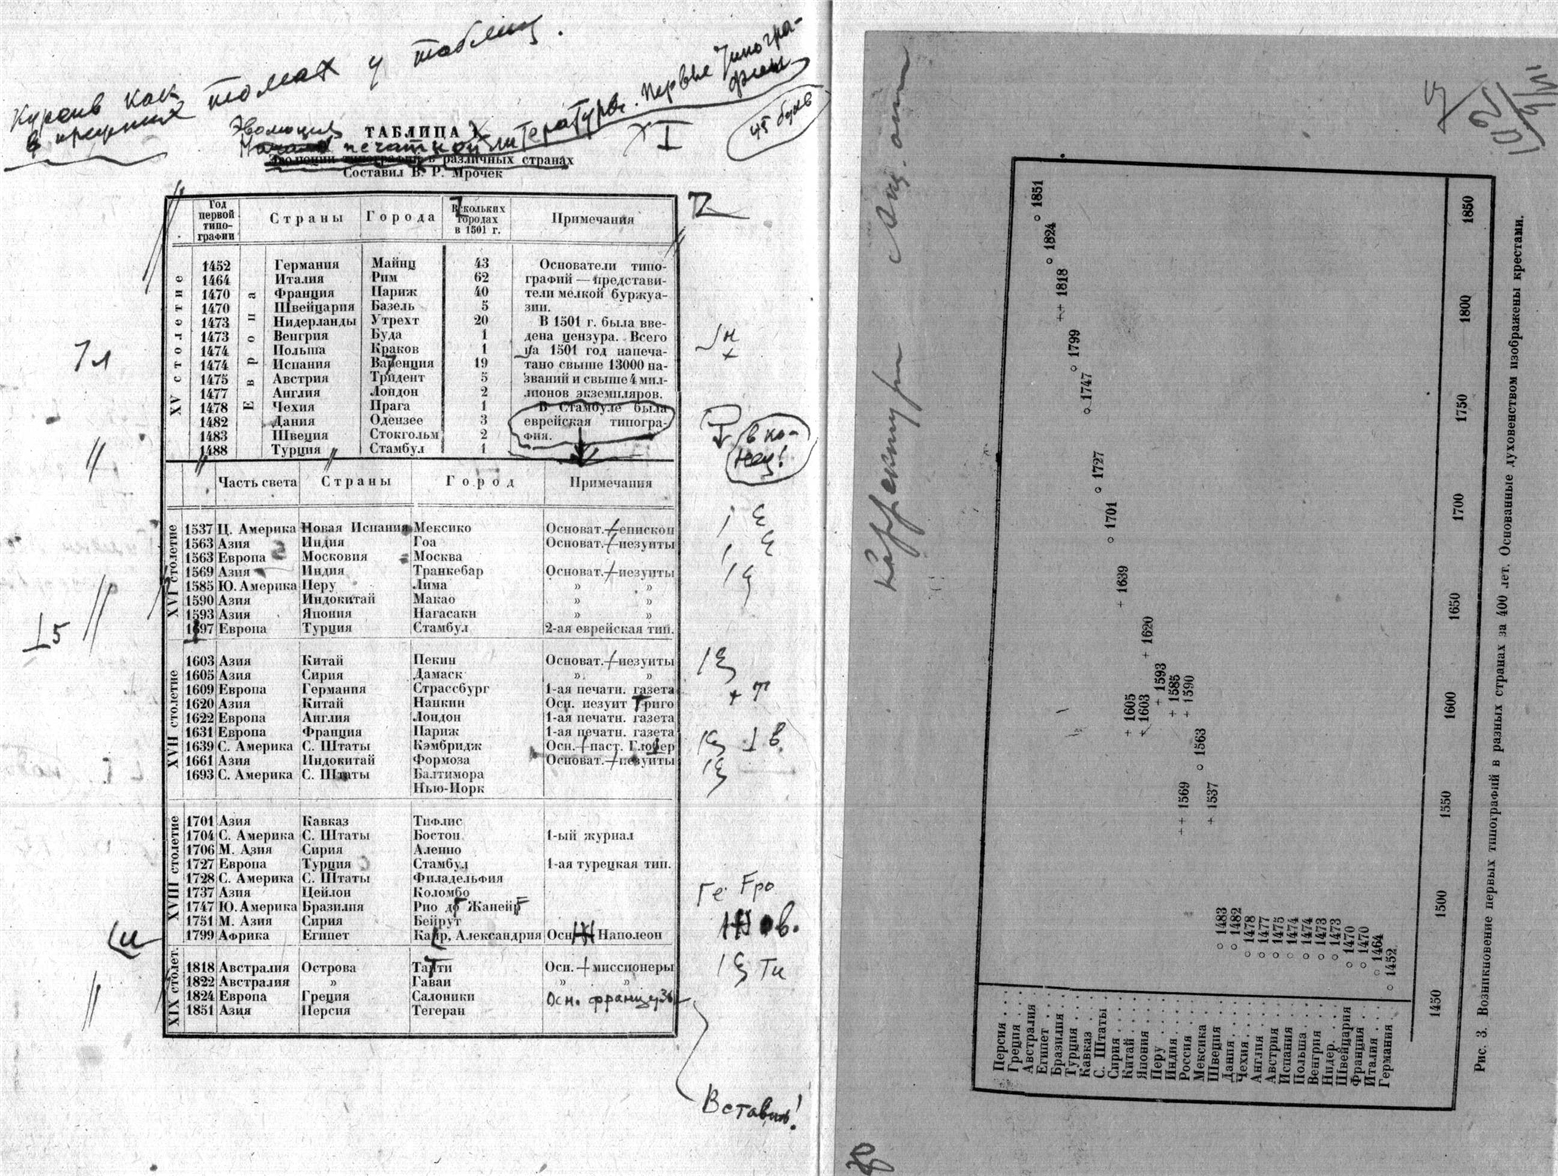 Курсив как
в прочих томах у таблиц.
Эволюция
печатной литературы. Первые типогра-
фии
45 букв
ТАБЛИЦА X
XI
Эволюции типографий в различных странах
Составил В. Р. Мрочек
Год первой типо-графии Страны Города В скольких городах в 1501 г. Примечания
XV столетие
Европа
1452 Германия Майнц 43 Основатели типо-
1464 Италия Рим 62 графий — представи-
1470 Франция Париж 40 тели мелкой буржуа-
1470 Швейцария Базель 5 зии.
1473 Нидерланды Утрехт 20 В 1501 г. была вве-
1473 Венгрия Буда 1 дена цензура. Всего
1474 Польша Краков 1 на 1501 год напеча-
1474 Испания Варенция 19 тано свыше 13000 на-
1475 Австрия Тридент 5 званий и свыше 4 мил-
1477 Англия Лондон 2 лионов экземпляров.
1478 Чехия Прага 1 В Стамбуле была
1482 Дания Одензее 3 еврейская типогра-
1483 Швеция Стокгольм 2 фия.
1488 Турция Стамбул 1
в ко-
нец!
Часть света Страны Город Примечания
XVI столетие
1537 Ц. Америка Новая Испания Мексико Основат. епископ
1563 Азия Индия Гоа Основат. иезуиты
1563 Европа Московия Москва
1569 Азия Индия Транкебар Основат. иезуиты
1585 Ю. Америка Перу Лима » »
1590 Азия Индокитай Макао » »
1593 Азия Япония Нагасаки » »
1697 Европа Турция Стамбул 2-ая еврейская тип.
XVII столетие
1603 Азия Китай Пекин Основат. иезуиты
1605 Азия Сирия Дамаск » »
1609 Европа Германия Страссбург 1-ая печатн. газета
1620 Азия Китай Нанкин Осн. иезуит Триго
1622 Европа Англия Лондон 1-ая печатн. газета
1631 Европа Франция Париж 1-ая печатн. газета
1639 С. Америка С. Штаты Кэмбридж Осн. паст. Гловер
1661 Азия Индокитай Формоза Основат. иезуиты
1693 С. Америка С. Штаты Балтимора
Нью-Йорк
XVIII столетие
1701 Азия Кавказ Тифлис
1704 С. Америка С. Штаты Бостон 1-ый журнал
1706 М. Азия Сирия Алеппо
1727 Европа Турция Стамбул 1-ая турецкая тип.
1728 С. Америка С. Штаты Филадельфия
1737 Азия Цейлон Коломбо
1747 Ю. Америка Бразилия Рио де Жанейр
1751 М. Азия Сирия Бейрут
1799 Африка Египет Каир, Александрия Осн. Наполеон
XIX столет.
1818 Австралия Острова Таити Осн. миссионеры
1822 Австралия » Гаваи » »
1824 Европа Греция Салоники Осн. французы
1851 Азия Персия Тегеран
Вставить!
Корректуры
1851
1824
1818
1799
1747
1727
1701
1639
1620
1605
1603
1593
1585
1590
1563
1569
1537
1483
1482
1478
1477
1475
1474
1474
1473
1473
1470
1470
1464
1452
1850
1800
1750
1700
1650
1600
1550
1500
1450
Персия
Греция
Австралия
Египет
Бразилия
Турция
Кавказ
С. Штаты
Сирия
Китай
Япония
Перу
Индия
Россия
Мексика
Швеция
Дания
Чехия
Англия
Австрия
Испания
Польша
Венгрия
Нидер.
Швейцария
Франция
Италия
Германия
Рис. 3. Возникновение первых типографий в разных странах за 400 лет. Основанные духовенством изображены крестами.